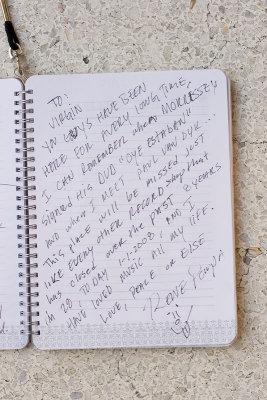 TO:
VIRGIN
YOU GUYS HAVE BEEN
HERE FOR A VERY LONG TIME,
I CAN REMEMBER when MORRISSEY
signed HIS DVD "OYE ESTABAN"
AND when I MEET PAUL VAN DYK..
This place will be missed just
LIKE EVERY other RECORD shop that
has closed over the past 8 YEARS
im 20, TODAY IS AND I
HAVE LOVED MUSIC ALL MY LIFE.
LOVE, PEACE OR ELSE